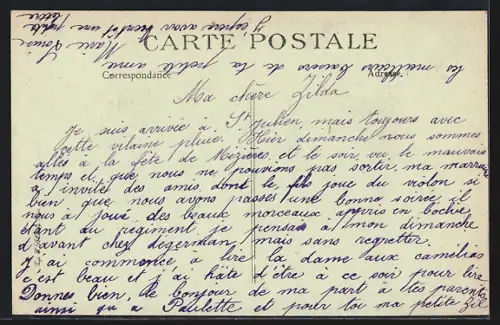 J'espère avoir bientôt une petite
lettre
Marie Louise
CARTE POSTALE
les meilleurs baisers de ta petite amie
Correspondance
Adresse
Ma chère Zilda
Je suis arrivée à St Julien, mais toujours avec
cette vilaine pluie. Hier dimanche nous sommes
allés à la fête de Mézières, et le soir, vu le mauvais
temps et que nous ne pouvions pas sortir, ma marraine
a invité des amis dont le fils joue du violon si
bien que nous avons passés une bonne soirée, il
nous à joué des beaux morceaux appris en
étant au régiment je pensais à mon dimanche
d'avant chez mais sans regretter.
J'ai commencé à lire la dame aux camélias
c'est beau et j'ai hâte d'être à ce soir pour lire
Donnes bien, le bonjour de ma part à tes parents
ainsi qu'a Paulette et pour toi ma petite Zil